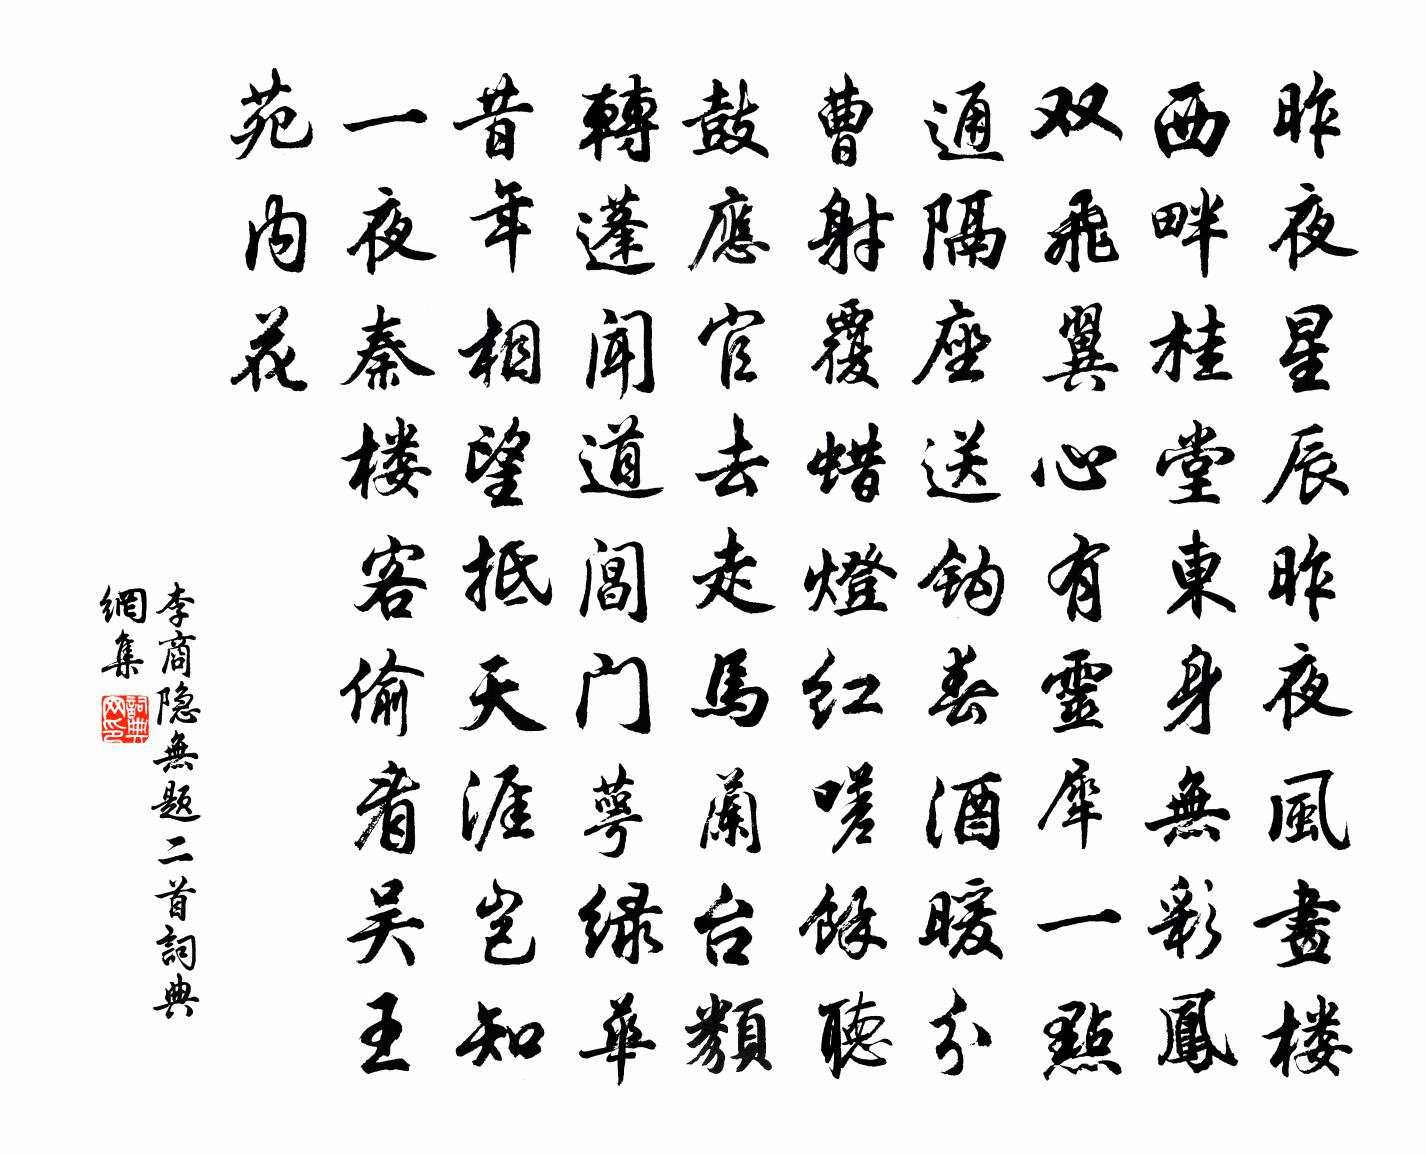 昨夜星辰昨夜風畫楼
西畔桂堂東身無彩鳳
双飛翼心有靈犀一點
通隔座送鈎春酒暖分
曹射覆蜡燈红嗟餘聽
鼓應官去走馬蘭台類
轉蓬聞道閶门萼绿華
昔年相望抵天涯岂知
一夜秦楼客偷看吴王
苑内花
李商隐無题二首詞典
網集
詞典
网印